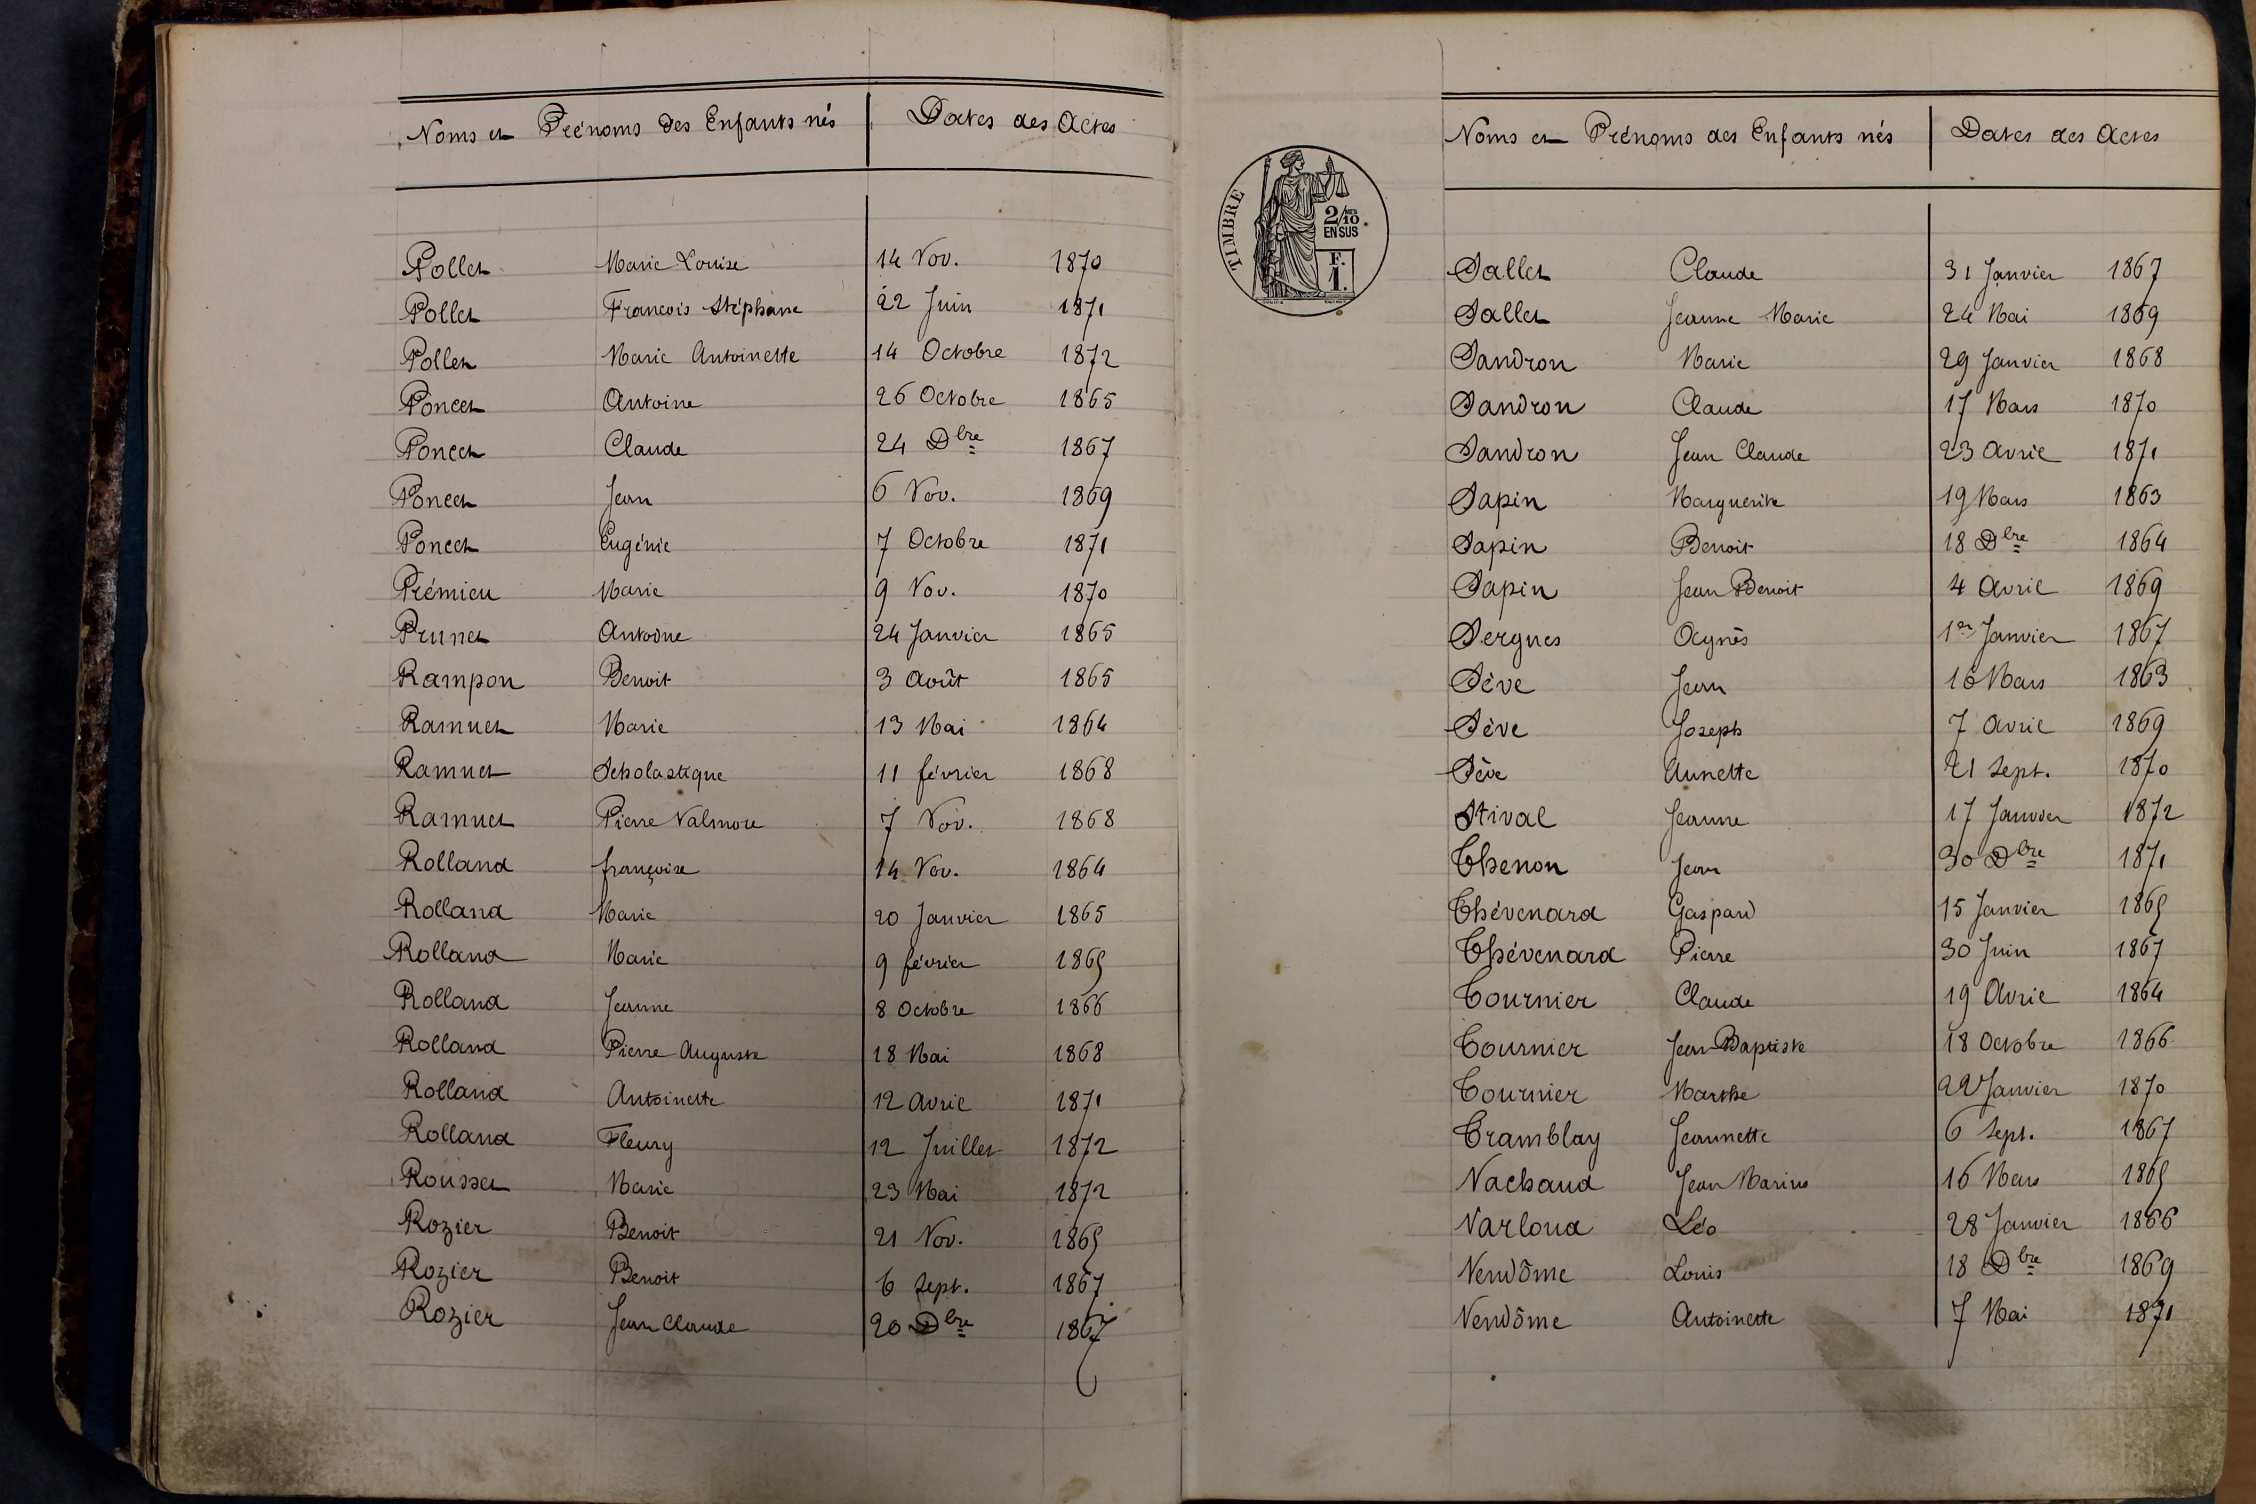 Noms et Prénoms des Enfants nés Dates des Actes
Pollet Marie Louise 14 Nov. 1870
Pollet Francois Stéphane 22 Juin 1871
Pollet Marie Antoinette 14 Octobre 1872
Poncet Antoine 26 Octobre 1865
Poncet Claude 24 Dbre 1867
Poncet Jean 6 Nov. 1869
Poncet Eugénie 7 Octobre 1871
Prémieu Marie 9 Nov. 1870
Prunet Antoine 24 Janvier 1865
Rampon Benoit 3 Août 1865
Ramuet Marie 13 Mai 1864
Ramuet Scholastique 11 février 1868
Ramuet Pierre Valmore 7 Nov. 1868
Rolland françoise 14 Nov. 1864
Rolland Marie 20 Janvier 1865
Rolland Marie 9 février 1865
Rolland Jeanne 8 Octobre 1866
Rolland Pierre Auguste 18 Mai 1868
Rolland Antoinette 12 Avril 1871
Rolland Fleury 12 Juillet 1872
Rousset Marie 23 Mai 1872
Rozier Benoit 21 Nov. 1865
Rozier Benoit 6 Sept. 1867
Rozier Jean Claude 20 Dbre 1867
Noms et Prénoms des Enfants nés Dates des Actes
TIMBRE
2/10
EN SUS
F.
1.
Sallet Claude 31 Janvier 1867
Sallet Jeanne Marie 24 Mai 1869
Sandron Marie 29 Janvier 1868
Sandron Claude 17 Mars 1870
Sandron Jean Claude 23 Avril 1871
Sapin Marguerite 19 Mars 1863
Sapin Benoit 18 Dbre 1864
Sapin Jean Benoit 4 Avril 1869
Sergues Agnès 1er Janvier 1867
Sève Jean 16 Mars 1863
Sève Joseph 7 Avril 1869
Sève Annette 21 Sept. 1870
Stival Jeanne 17 Janvier 1872
Thenon Jean 30 Dbre 1871
Thévenard Gaspard 15 Janvier 1865
Thévenard Pierre 30 Juin 1867
Tournier Claude 19 Avril 1864
Tournier Jean Baptiste 18 Octobre 1866
Tournier Marthe 22 Janvier 1870
Tramblay Jeannette 6 Sept. 1867
Vachaud Jean Marius 16 Mars 1865
Varloud Léo 28 Janvier 1866
Vendôme Louis 18 Dbre 1869
Vendôme Antoinette 7 Mai 1871